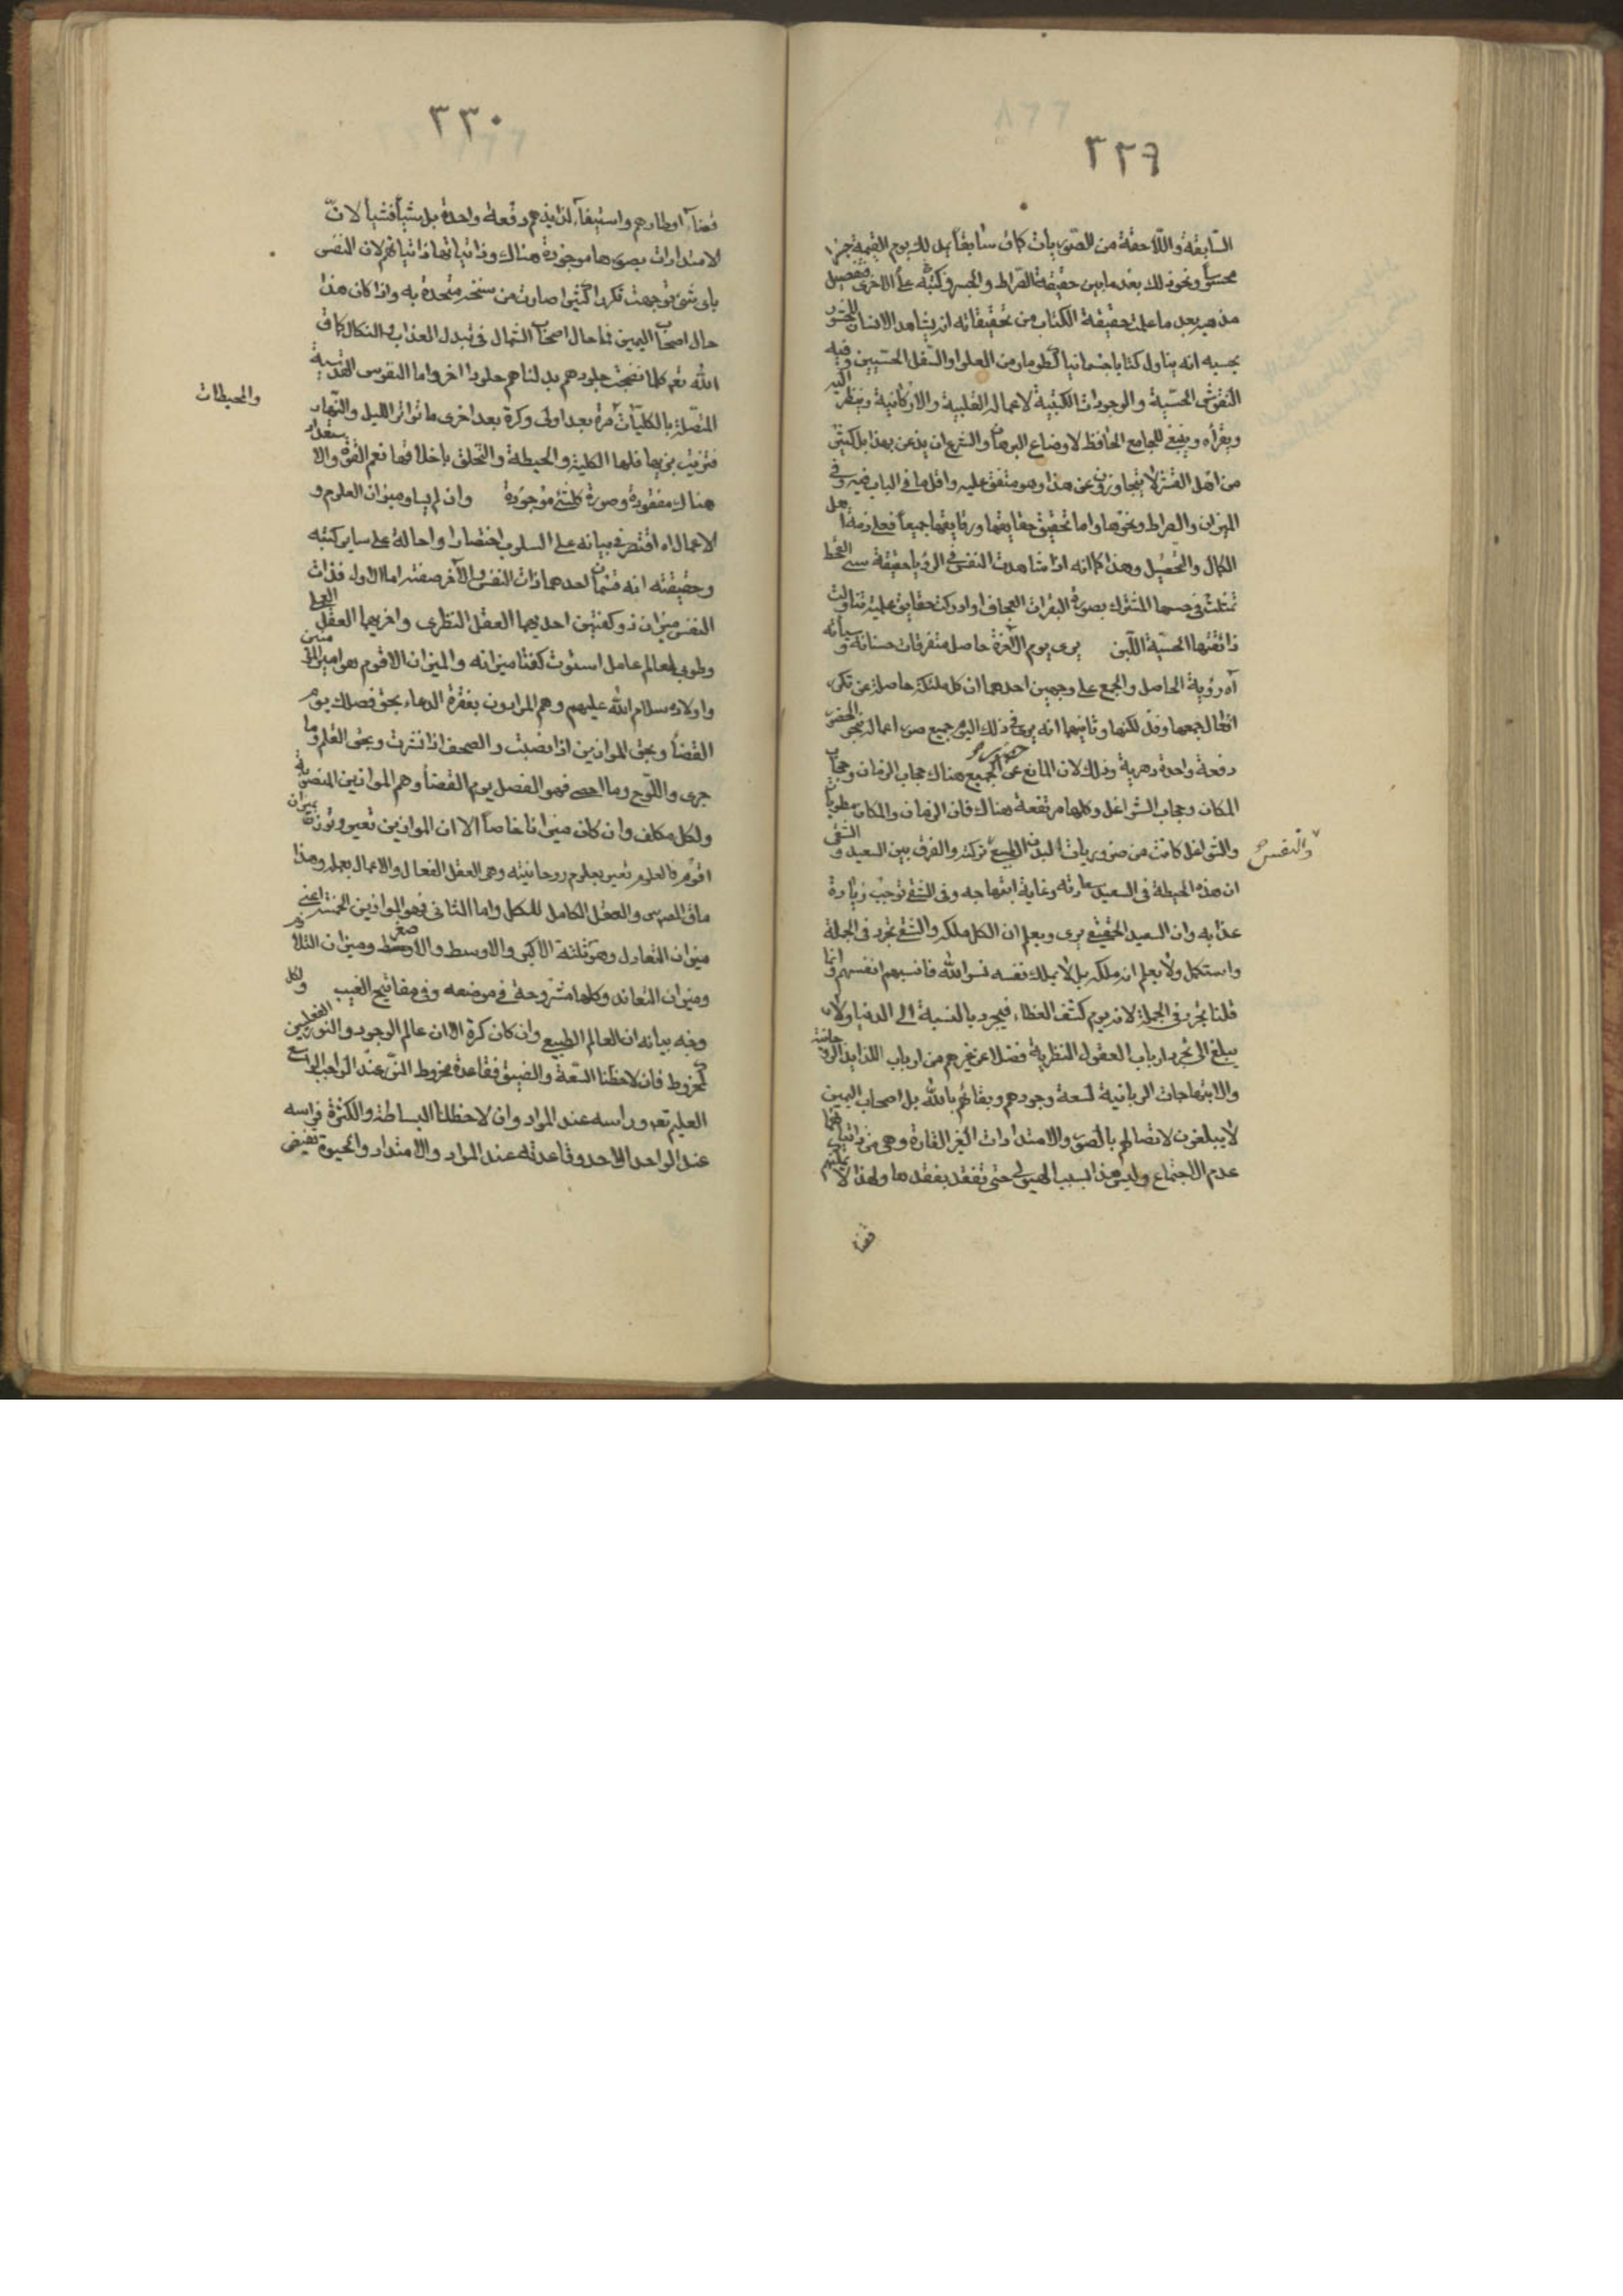 ٣٢٩
السّابقة واللّاحقة من الصّور بات كان شايقا يدلك يوم القيمة جزء
محسوس ونحو ذلك بعد ما بين حقيقة الصّراط والجسر وكتبه على الاخرى فتحصيل
مذهبه بعد ما علمت حقيقة الكتاب من تحقيقاته ان يشاهد الانسان المحشور
بجسمه انه يناول كتابا جسمانيا كطومار من العلو او السّفل الحسّيين وفيه
النقوش الحسّية والوجودات الكتبية لاعماله القلبية والاركانية وينظر اليه
ويقرأه وينبغى للجامع الحافظ لاوضاع البرهان والشرع ان يذعن بهذا بل كثير
من اهل القشر لا يتجاوزون عن هذا وهو متفق عليه واقل ما فى الباب فيه وفى
الميزان والصراط ونحوها واما تحقيق حقايقها ورقايقها جميعا فعلى ذمة اهل
الكمال والتحصيل وهذا كما انه اذا شاهدت النفس فى الرؤيا حقيقة سنى القحط
تمثلت فى حسها المشترك بصورة البقرات العجاف او ادركت حقايق علمية تناولت
ذائقتها الحسّية اللّبن يرى يوم الآخرة حاصل متفرقات حسناته وسيأته
آه رؤية الحاصل والجمع على وجهين احدهما ان كل ملكة حاصلة من تكرر
افعال جمعها وفذلكتها وثانيهما انه يرى فى ذلك اليوم جميع صور اعماله بنحو الحضور
دفعة واحدة دهرية وذلك لان المانع عن حضور الجميع هناك حجاب الزمان وحجاب
المكان وحجاب الشواغل وكلها مرتفعة هناك فان الزمان والمكان مطويان
والشواغل كانت من ضروريات البدن الطبيعى تركته والفرق بين السعيد والشقى
والنفس
ان هذه الحيطة فى السعيد سعادته وغاية ابتهاجه وفى الشقى توجب زيادة
عذابه وان السعيد الحقيقى يرى ويعلم ان الكل ملكه والشقى تجرد فى الجملة
واستكمل ولا يعلم انه ملكه بل لا يملك نفسه نسوا الله فانسيهم انفسهم وانما
قلنا تجرد فى الجملة لانه يوم كشف الغطاء فيجرد بالنسبة الى الدنيا ولان
يبلغ الى تجرد ارباب العقول النظرية فضلا عن غيرهم من ارباب اللذايذ الروحانية
والابتهاجات الربانية لسعة وجودهم وبقائهم بالله بل اصحاب اليمين
لا يبلغون لاتصالهم بالصور والامتدادات الغير القارة وهى من ذاتياتها
عدم الاجتماع وليس هذا بسبب الهيولى حتى تفقد بفقدها ولهذا لا يمكنهم
قضاء
٣٣٠
قضاء اوطارهم واستيفاء لذايذهم دفعة واحدة بل شيأ فشيأ لانّ
الامتدادات بصورها موجودة هناك وذاتياتها ذاتياتهم لان النفس
باى شئ توجهت تكررا كثيرا صارت من سنخه متحدة به واذا كان هذا
حال اصحاب اليمين فما حال اصحاب الشمال فى تبدل العذاب والنكال كما قال
الله تعم كلما نضجت جلودهم بدلناهم جلودا اخر واما النفوس القدسية
المتصلة بالكليات مرة بعد اولى وكرة بعد اخرى ما تواتر الليل والنهار
والمحيطات
فتزيت بزيها فلها الكلية والحيطة والتخلق باخلاقها نعم القوة والاستعداد
هناك مفقودة وصورة كلشئ موجودة وان لم يساو ميزان العلوم و
الاعمال اه اقتصر فى بيانه على السلوب اختصارا واحالة على ساير كتبه
وحقيقته انه قسمان احدهما ذات النفس والآخر صفته اما الاول فذات
النفس ميزان ذو كفتين احديهما العقل النظرى واخريهما العقل العملى
وطوبى لعالم عامل استوت كفتا ميزانه والميزان الاقوم هو امير المؤمنين
واولاده سلام الله عليهم وهم المرادون بفقرة الدعاء بحق فصلك يوم
القضاء وبحق الموازين اذا نصبت والصحف اذا نشرت وبحق القلم وما
جرى واللّوح وما احصى فهو الفصل يوم القضاء وهم الموازين المنصوبة
ولكل مكلف وان كان ميزانا خاصا الا ان الموازين تعير وتوزن بميزان
اقوم فالعلوم تعير بعلوم روحانيته وهى العقل الفعال والاعمال بعمله وهذا
ماق المدرس والعقل الكامل للمكل واما الثانى فهو الموازين الخمسة اعنى
ميزان التعادل وهو ثلثة الاكبر والاوسط والاصغر وميزان التلازم
وميزان التعاند وكلها مشروحة فى موضعه وفى مفاتيح الغيب ولكل
وجه بيانه ان العالم الطبيعى وان كان كرة الا ان عالم الوجود والنور الفعليين
كمخروط فان لاحظنا السّعة والضيق فقاعدة مخروط النّور عند الواجب الواسع
العليم تعم وراسه عند المواد وان لاحظنا البساطة والكثرة فراسه
عند الواحد الاحد وقاعدته عند المواد والامتداد والحيوة يفيض